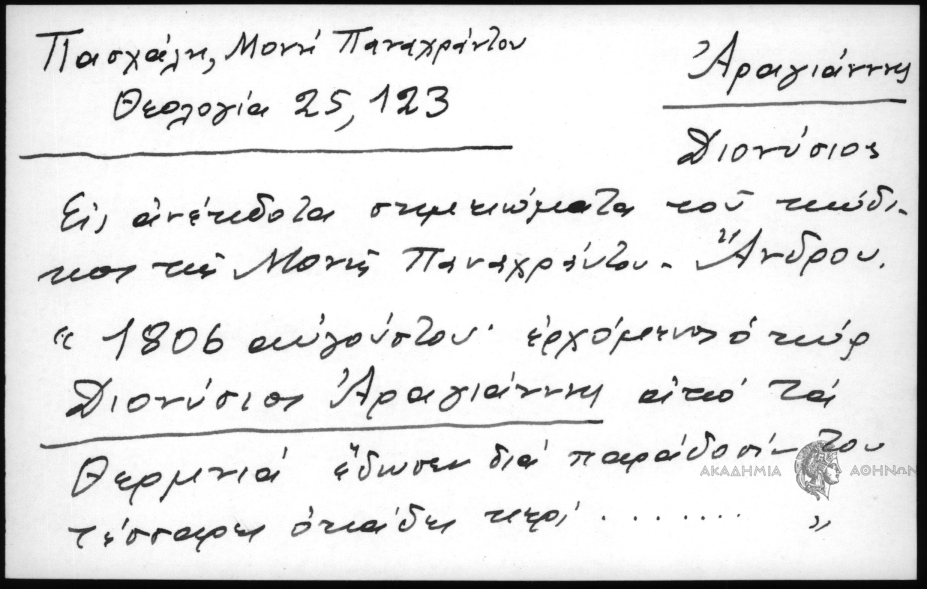 Πασχάλη, Μονή Παναχράντου
Θεολογία 25, 123
Ἀραγιάννης
Διονύσιος
Εἰς ἀνέκδοτα σημειώματα τοῦ κώδι-
κος τῆς Μονῆς Παναχράντου - Ἄνδρου.
« 1806 αὐγούστου· ἐρχόμενος ὁ κύρ
Διονύσιος Ἀραγιάννης ἀπό τά
Θερμνιά ἔδωσεν διά παράδοσίν του
τέσσαρες ὀκάδες κερί ........ »
ΑΚΑΔΗΜΙΑ ΑΘΗΝΩΝ